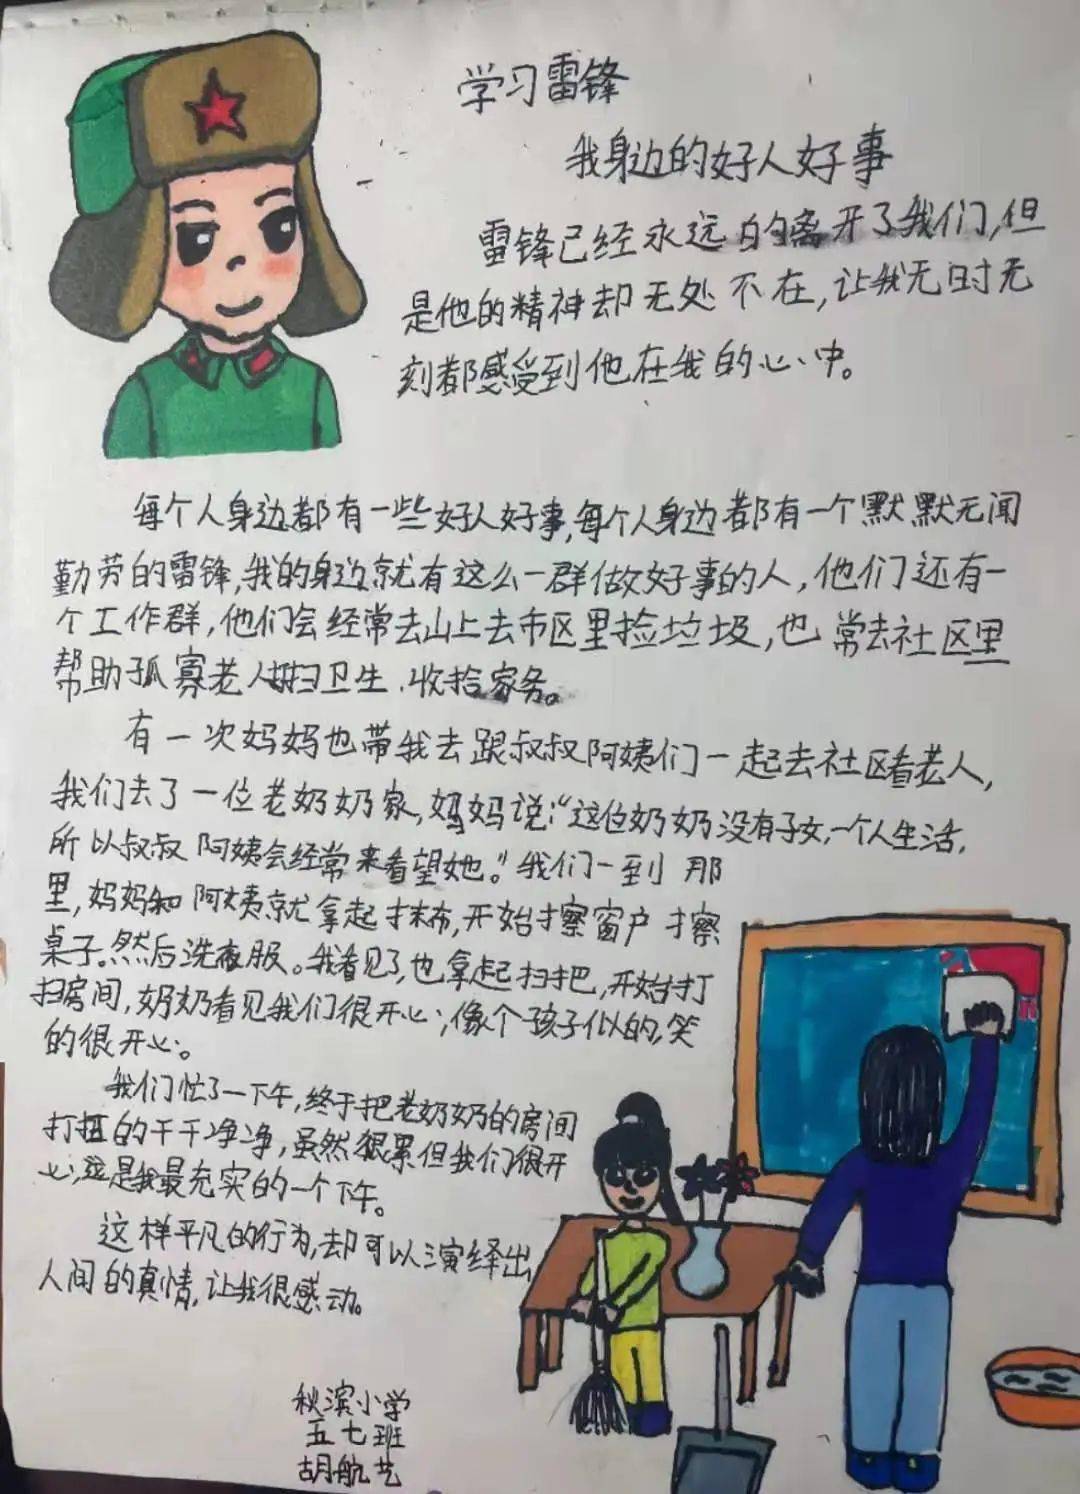 学习雷锋
我身边的好人好事
雷锋已经永远的离开了我们,但
是他的精神却无处不在,让我无时无
刻都感受到他在我的心中。
每个人身边都有一些好人好事,每个人身边都有一个默默无闻
勤劳的雷锋,我的身边就有这么一群做好事的人,他们还有一
个工作群,他们会经常去山上去市区里捡垃圾,也常去社区里
帮助孤寡老人打扫卫生、收拾家务。
有一次妈妈也带我去跟叔叔阿姨们一起去社区看老人,
我们去了一位老奶奶家,妈妈说:“这位奶奶没有子女,一个人生活,
所以叔叔阿姨会经常来看望她。”我们一到那
里,妈妈和阿姨就拿起抹布,开始擦窗户擦
桌子。然后洗衣服。我看见了,也拿起扫把,开始打
扫房间,奶奶看见我们很开心,像个孩子似的,笑
的很开心。
我们忙了一下午,终于把老奶奶的房间
打扫的干干净净,虽然很累但我们很开
心,这是我最充实的一个下午。
这样平凡的行为,却可以演绎出
人间的真情,让我很感动。
秋滨小学
五七班
胡航艺